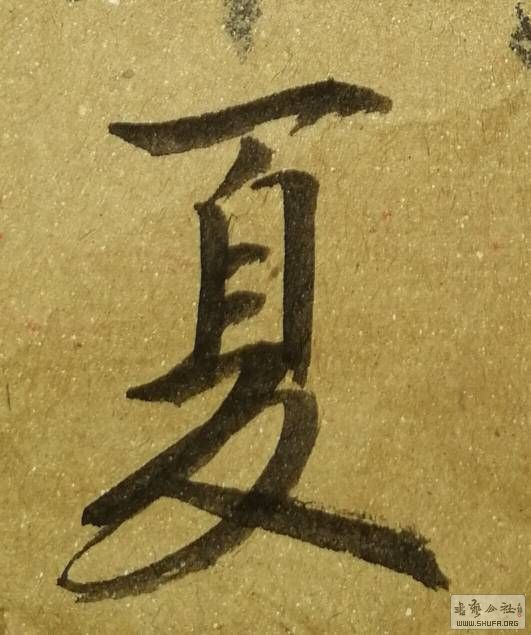 夏
书艺公社
WWW.SHUFA.ORG